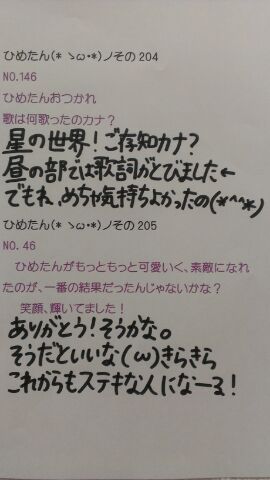 ひめたん(* ゝω・*)ノその204
NO.146
ひめたんおつかれ
歌は何歌ったのカナ？
星の世界！ご存知カナ？
昼の部では歌詞がとびました←
でもね、めちゃ気持ちよかったの(*^^*)
ひめたん(* ゝω・*)ノその205
NO. 46
ひめたんがもっともっと可愛いく、素敵になれ
たのが、一番の結果だったんじゃないかな？
笑顔、輝いてました！
ありがとう！そうかな。
そうだといいな(ω)きらきら
これからもステキな人になーる！